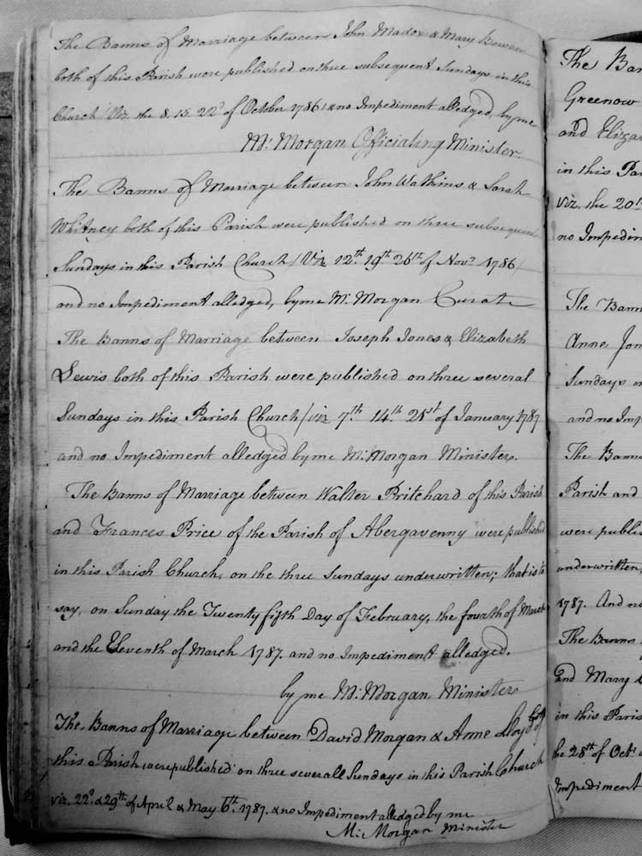 The Banns of Marriage between John Madox & Mary Bowen
both of this Parish were published on three subsequent Sundays in this
Church Viz. the 8. 15. 22d of October 1786 & no Impediment alledged, by me
M: Morgan Officiating Minister.
The Banns of Marriage between John Watkins & Sarah
Whitney both of this Parish were published on three subsequent
Sundays in this Parish Church /Viz 12th 19th 26th of Novr 1786/
and no Impediment alledged, by me M: Morgan Curate
The Banns of Marriage between Joseph Jones & Elizabeth
Lewis both of this Parish were published on three several
Sundays in this Parish Church /viz 7th 14th 21st of January 1787
and no Impediment alledged by me M: Morgan Minister.
The Banns of Marriage between Walter Pritchard of this Parish
and Frances Price of the Parish of Abergavenny were published
in this Parish Church, on the three Sundays underwritten; that is to
say, on Sunday the Twenty fifth Day of February, the fourth of March
and the Eleventh of March 1787. and no Impediment alledged.
by me M: Morgan Minister
The Banns of Marriage between David Morgan & Anne Lloyd both of
this Parish were published on three severall Sundays in this Parish Church
viz. 22d & 29th of April & May 6th 1787. & no Impediment alledged by me
M: Morgan Minister
The Ban
Greenow
and Eliza
in this Pa
viz. the 20th
no Impedim
The Bann
Anne Jon
Sundays in
and no Imp
The Banns
Parish and
were publis
underwritten,
1787. And no
The Banns
And Mary
in this Paris
the 28th of Octr
Impediment